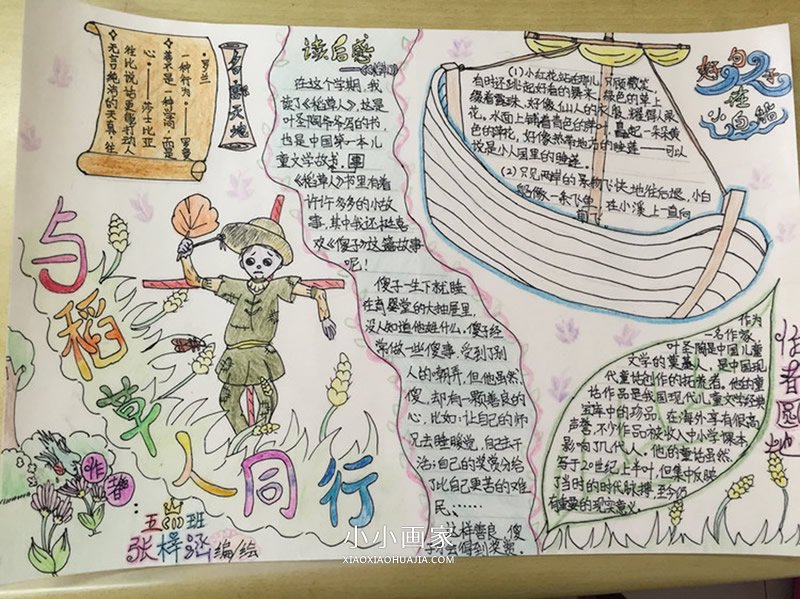 与稻草人同行
作者:
五(1)班
张梓涵 编/绘
·罗兰
一种行为——罗曼
善不是一种学问，而是
心。——莎士比亚
往比说话更能打动人
无言纯洁的天真，往
名言天地
读后感
在这个学期，我
读了《稻草人》，这是
叶圣陶爷爷写的书，
也是中国第一本儿
童文学故书。
《稻草人》书里有着
许许多多的小故
事，其中我还挺喜
欢《傻子》这篇故事
呢！
傻子一生下就睡
在育婴堂的大抽屉里，
没人知道他姓什么，傻子经
常做一些傻事，受到了别
人的嘲弄，但他虽然
傻，却有一颗善良的
心，比如：让自己的师
兄去睡睡觉，自己去干
活；自己的奖赏分给
了比自己更苦的难
民、……
这样善良，傻
子才会得到奖赏。
好句子
在
小白船
(1)小红花站在那儿，只顾微笑，
有时还跳起好看的舞来。绿色的草上
缀着露珠，好像仙人的衣服，耀得人眼
花。水面上铺着青色的萍叶，矗起一朵朵黄
色的萍花，好像热带地方的睡莲——可以
说是小人国里的睡莲。
(2)只见两岸的景物飞快地往后退，小白
船像一条飞鱼，在小溪上一直向
前
作者圆地
作为
一名作家，
叶圣陶是中国儿童
文学的奠基人，是中国现
代童话创作的拓荒者。他的童
话作品是我国现代儿童文学经典
宝库中的珍品，在海外享有很高
声誉，不少作品被收入中小学课本，
影响了几代人。他的童话虽然
写于20世纪上半叶，但集中反映
了当时的时代脉搏，至今仍
有重要的现实意义。
小小画家
XIAOXIAOHUAJIA.COM